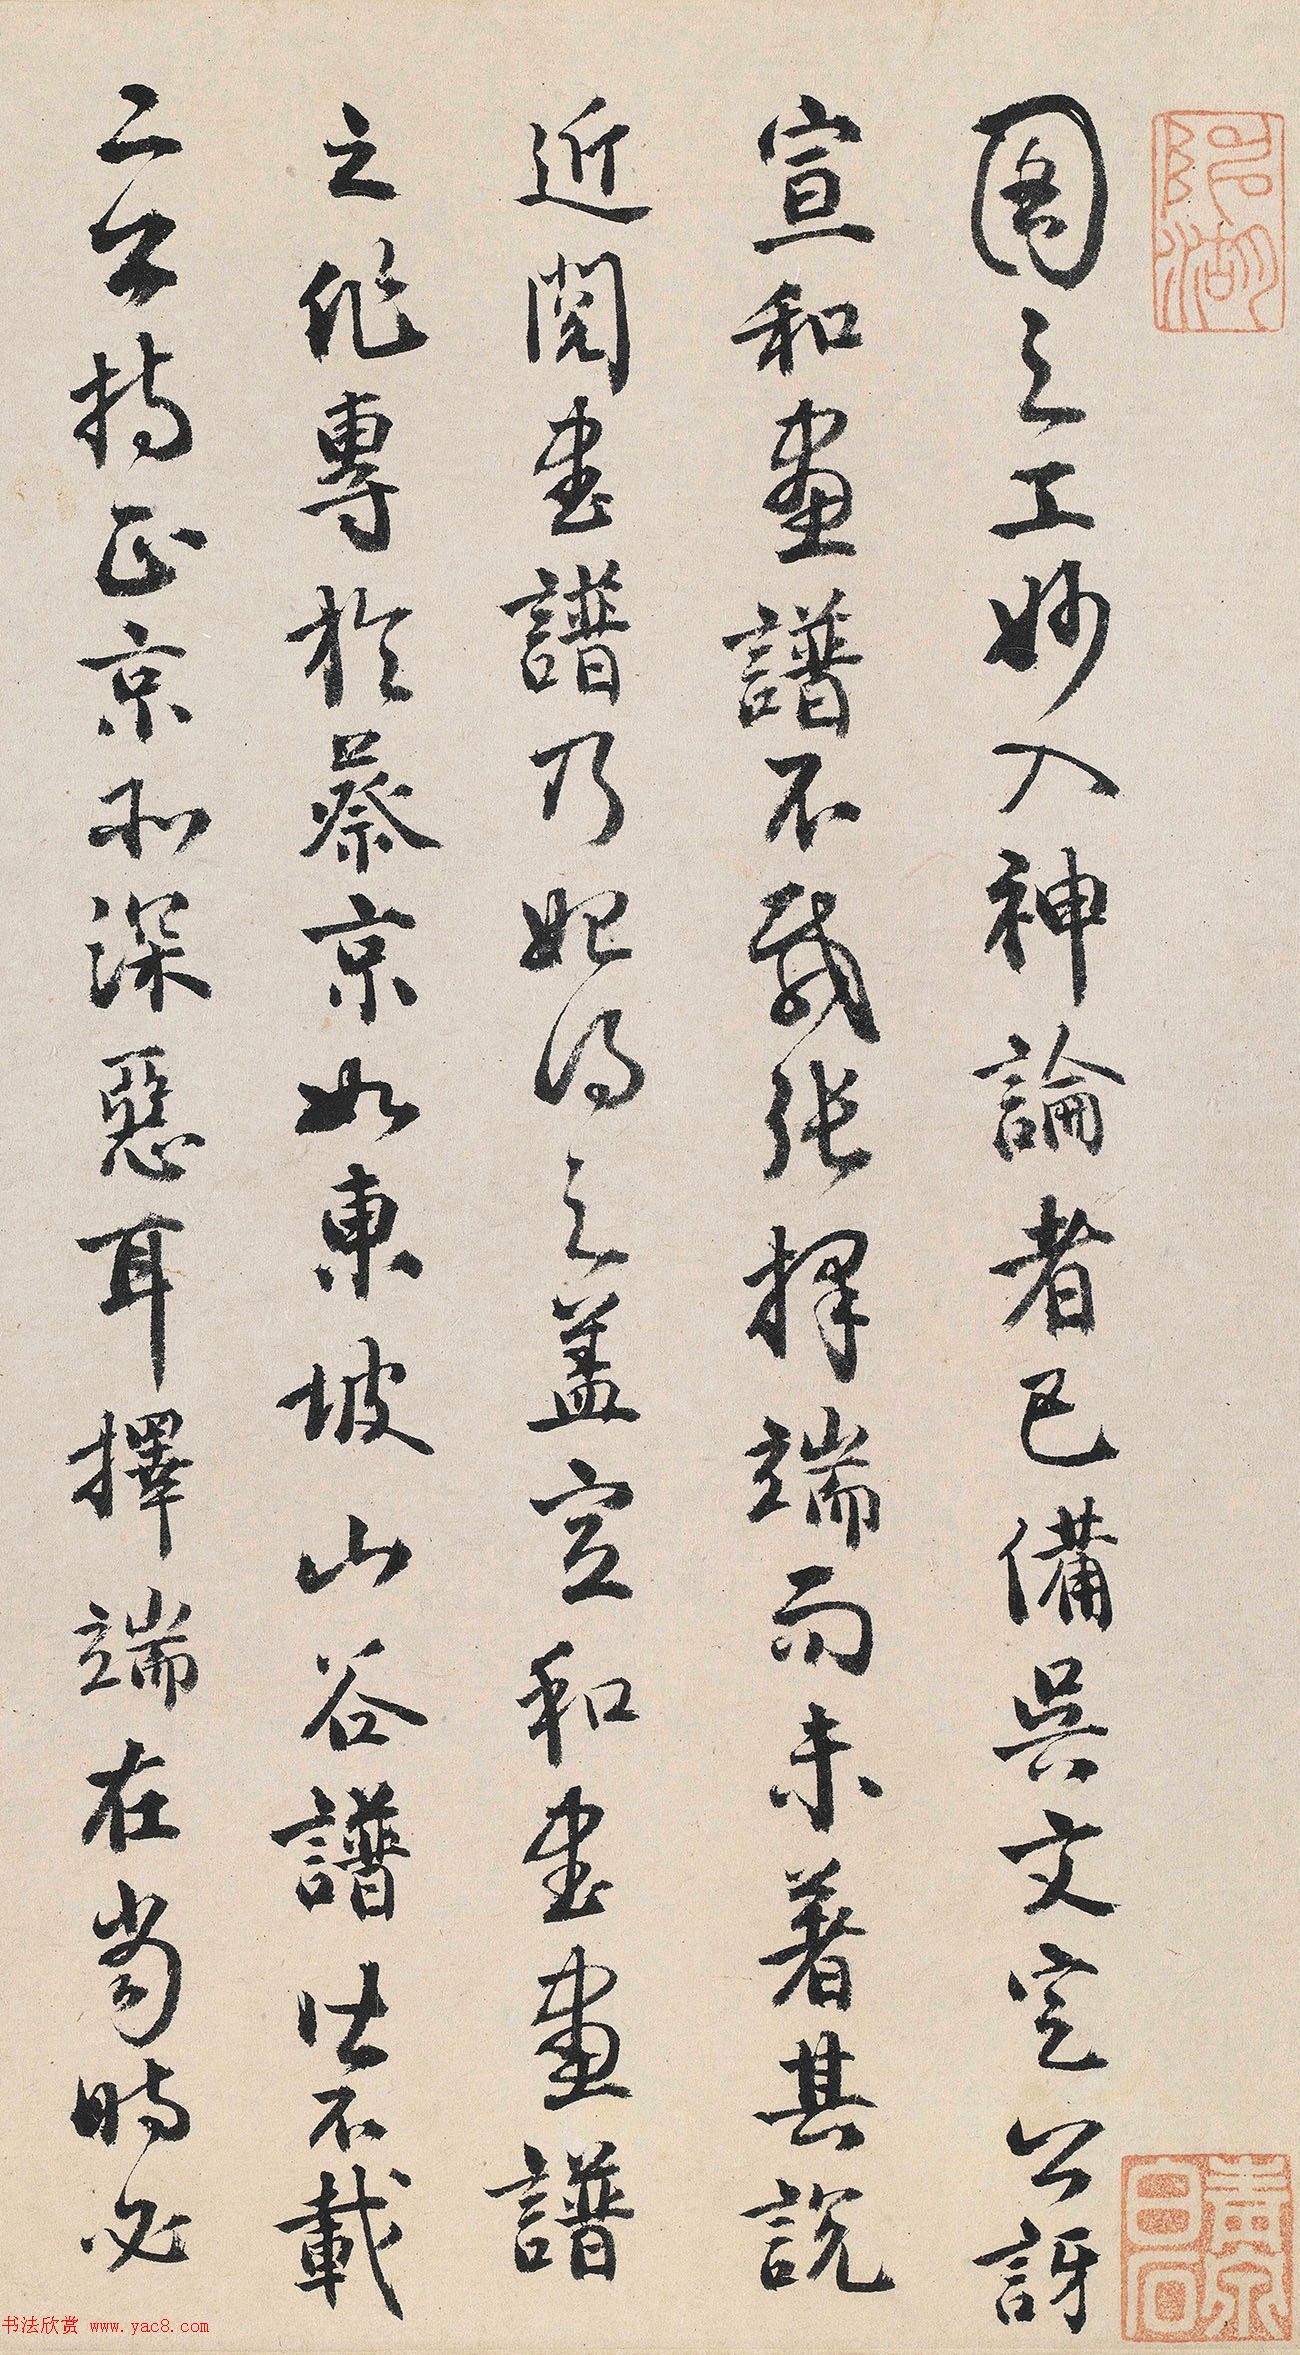 圖之工妙入神論者已備吳文定公訝
宣和畫譜不載張擇端而未著其説
近閱書譜乃始得之蓋宣和書畫譜
之作專於蔡京如東坡山谷譜皆不載
二公持正京所深惡耳擇端在當時必
书法欣赏 www.yac8.com